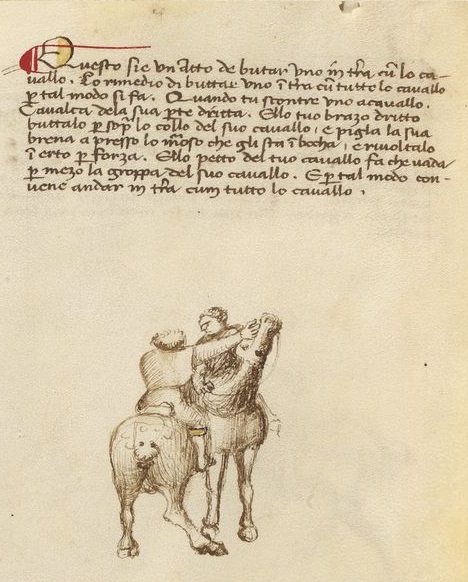 Questo sie un atto de butar uno in t'ra cu lo ca-
vallo. Lo rimedio di buttar uno i t'ra cu tutto lo cavallo
p tal modo si fa. Quando tu scontre uno a cavallo.
Cavalca dela sua p'te dritta. Ello tuo brazo dritto
buttalo p sop' lo collo del suo cavallo, e pigla la sua
brena apresso lo moso che gli sta i bocha, e rivoltalo
i erto p forza. Ello petto del tuo cavallo fa che vada
p mezo la groppa del suo cavallo. E p tal modo con-
vene andar in t'ra cum tutto lo cavallo.